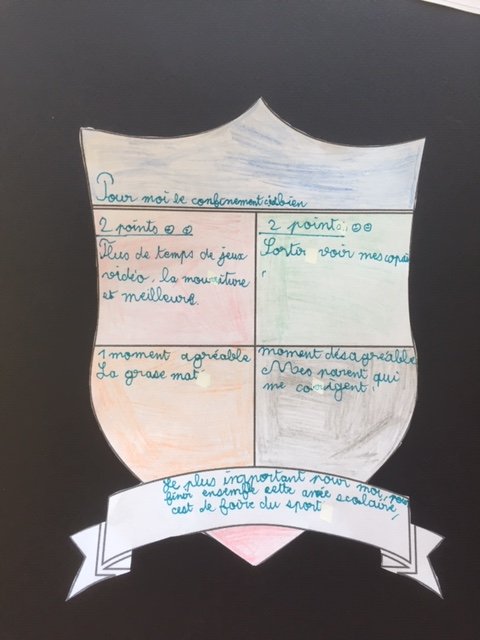 Pour moi le confinement c'est bien
2 points
Plus de temps de jeux
vidéo, la nourriture
et meilleure.
2 points
Sortir voir mes copain
1 moment agréable
La grase mat
moment désagréable
Mes parent qui
me corrigent.
Le plus important pour moi, pour
finir ensemble cette anée scolaire,
c'est de faire du sport